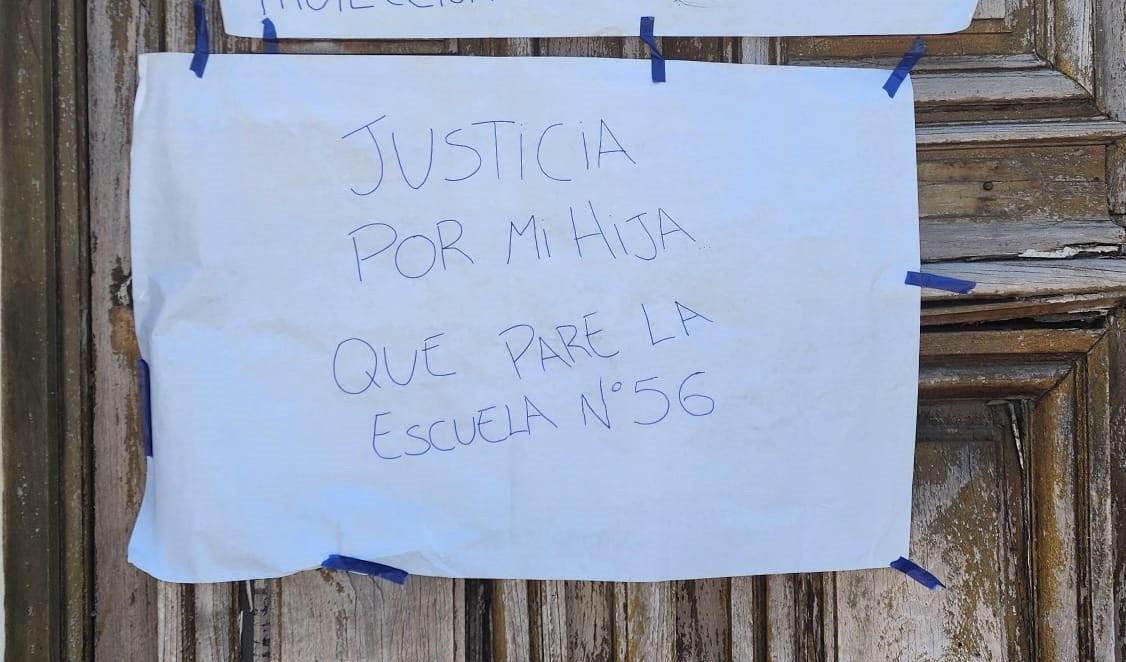 PROTECCIÓN
JUSTICIA
POR MI HIJA..
QUE PARE LA
ESCUELA N°56